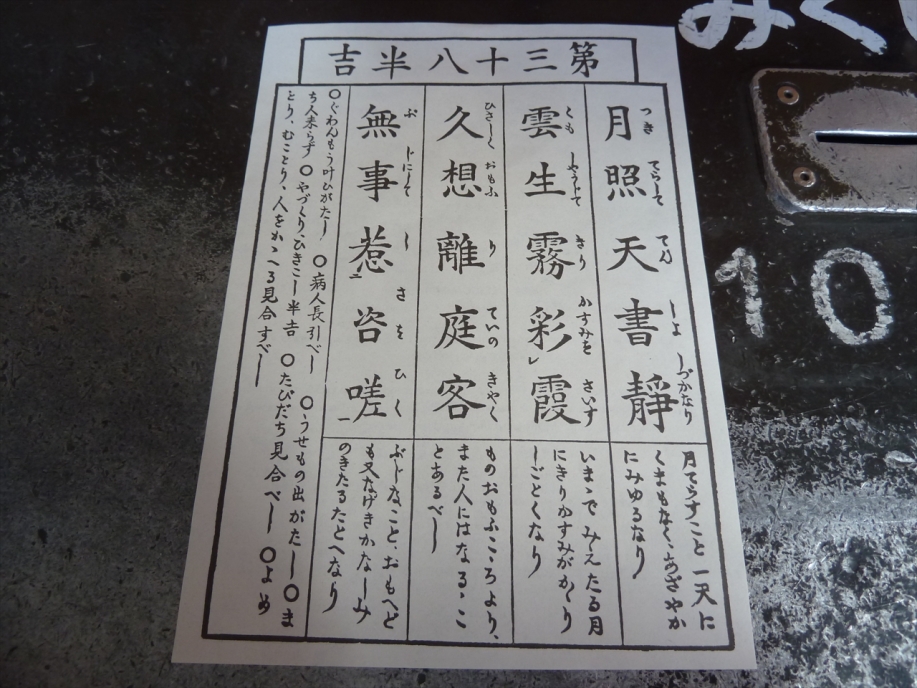 みく
10
第三十八半吉
月照天書靜
つき てらして てん しよ しづかなり
雲生霧彩レ霞
くも しやうじて きり かすみを さいす
久想離庭客
ひさしく おもふ り ていの きやく
無事惹二咨嗟一
ぶ じにして し さを ひく
月てらすこと一天に
くまもなく、あざやか
にみゆるなり
いまゝで みえたる月
にきりかすみがかゝり
しごとくなり
ものおもふこころより、
また人にはなるゝこ
とあるべし
ぶじなこと、おもへど
も又なげきかなしみ
のきたるたとへなり
○ぐわんもう叶ひがたし ○病人長引べし ○うせもの出がたし ○ま
ち人来らず ○やづくり、ひきこし半吉 ○たびだち見合べし ○よめ
とり、むことり、人をかゝへる見合すべし